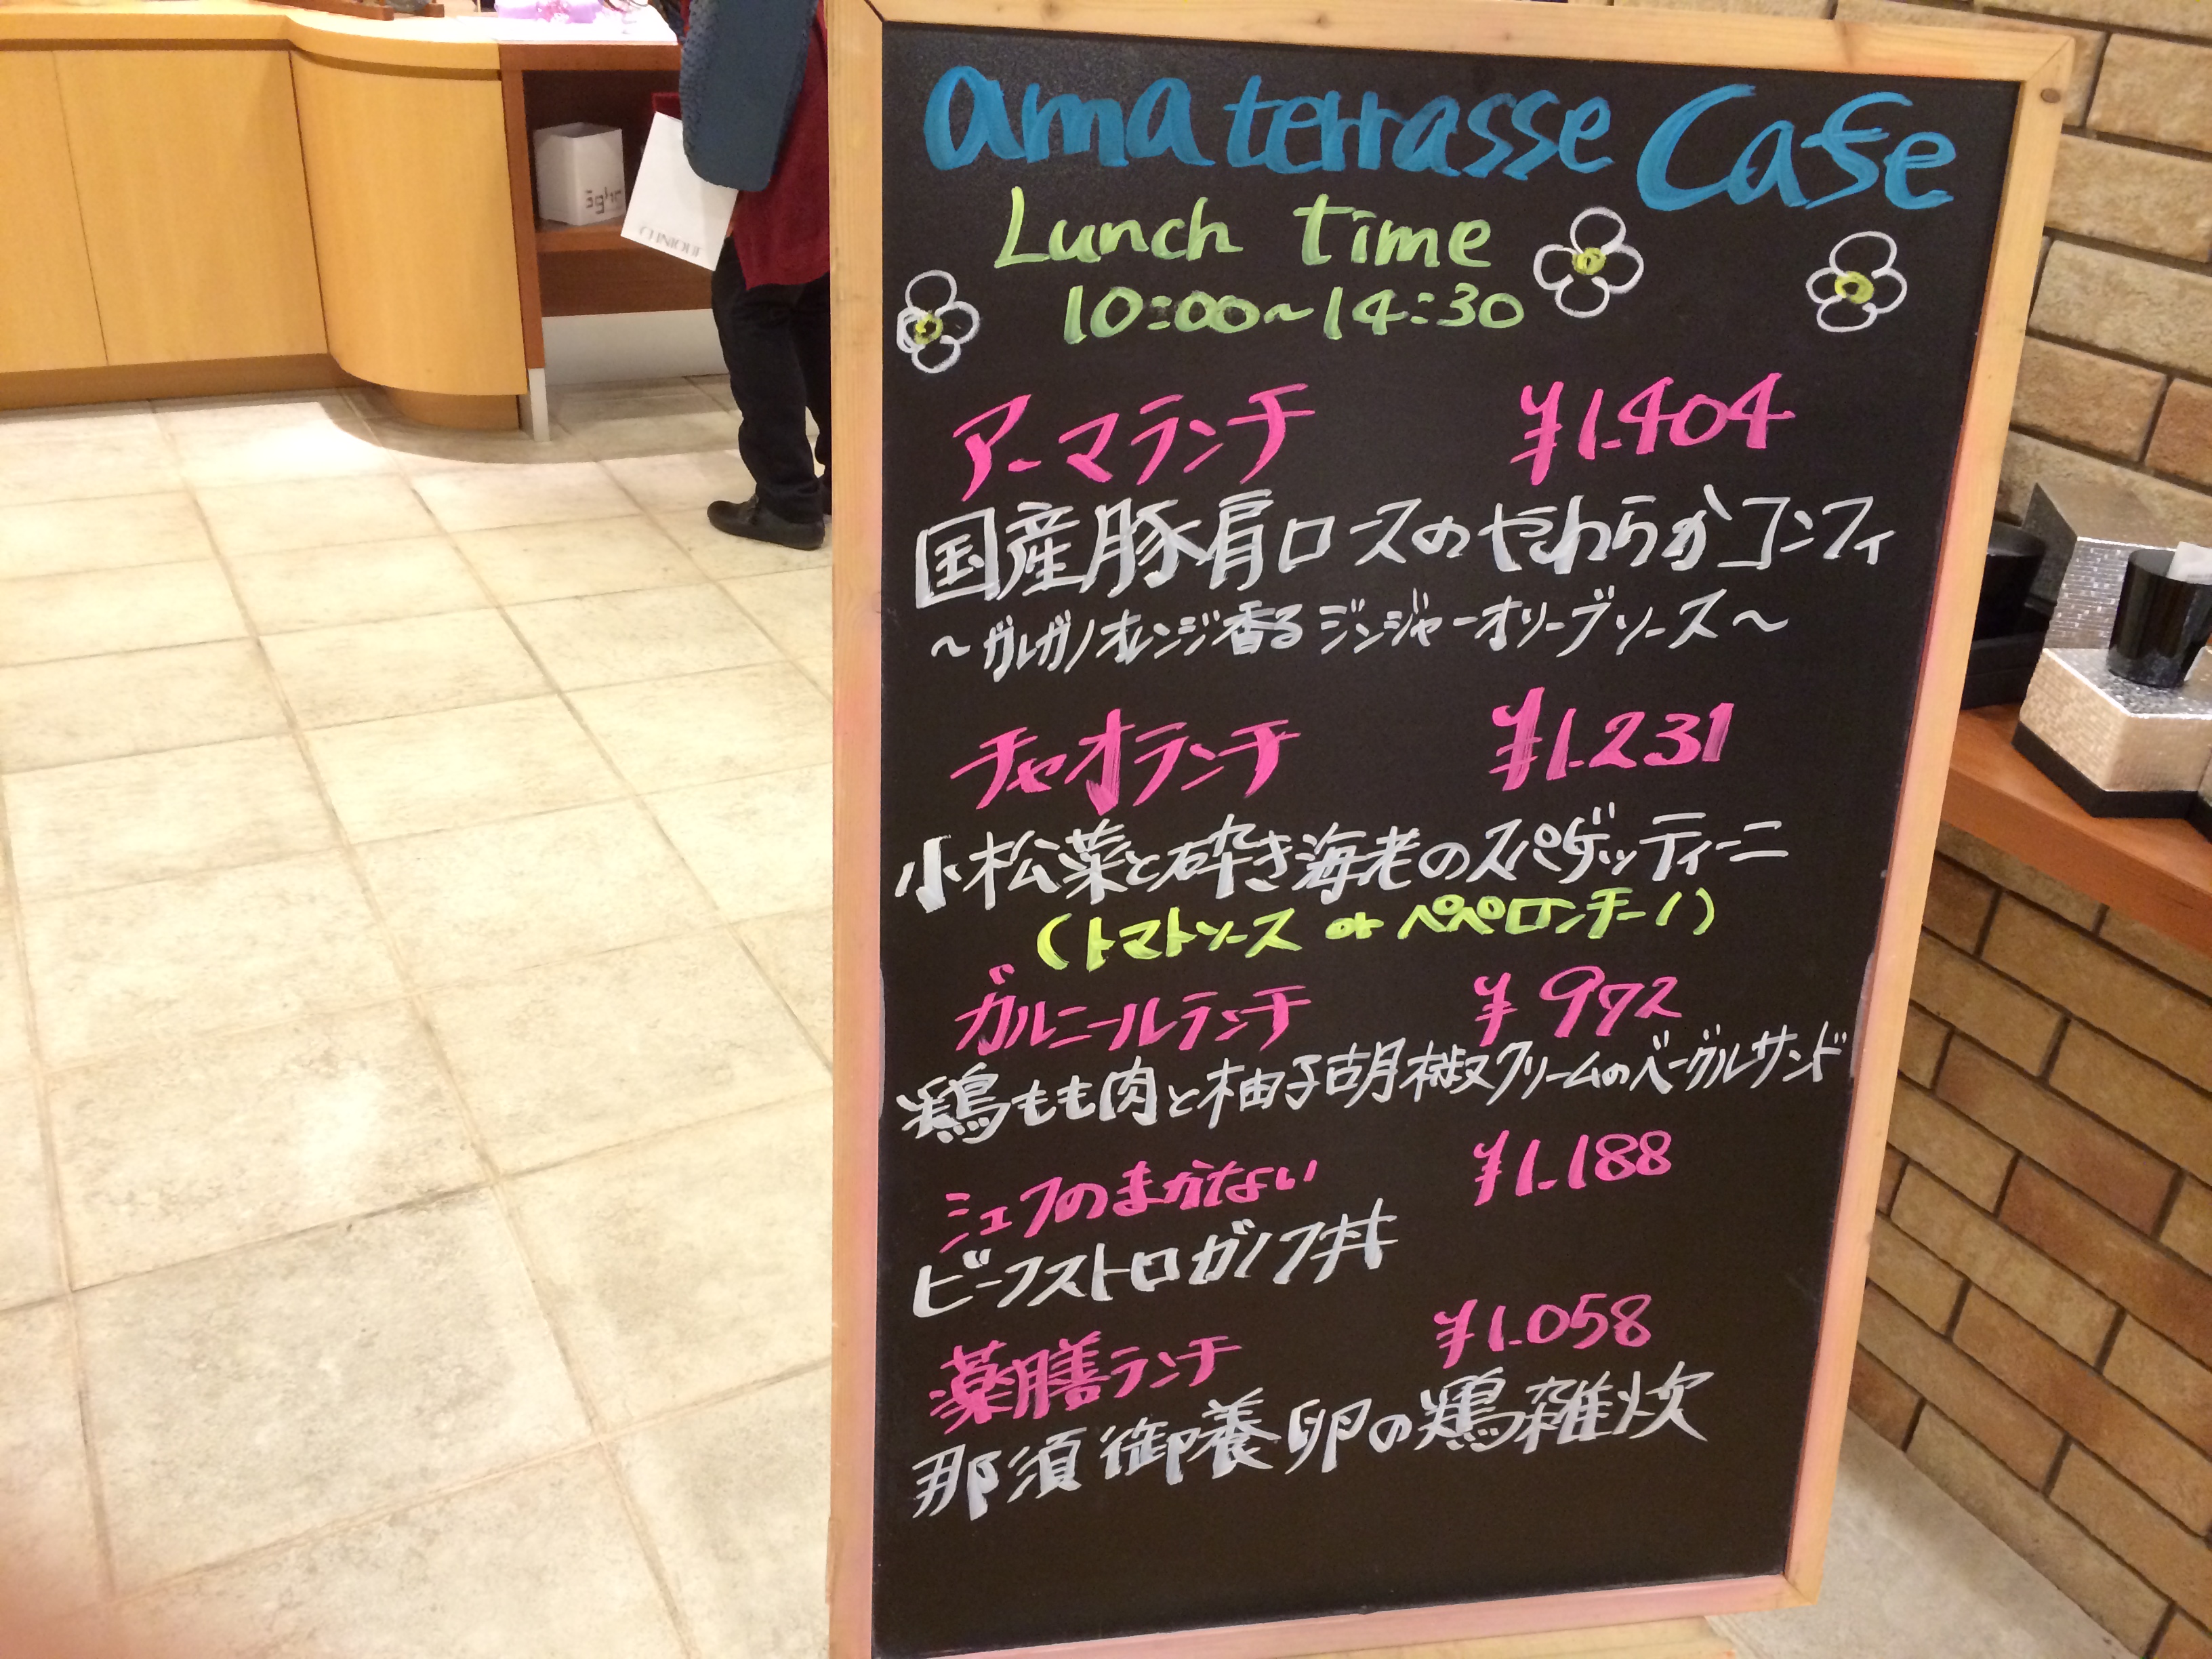 ama terrasse Cafe
Lunch Time
10:00~14:30
アーマランチ ¥1.404
国産豚肩ロースのやわらかコンフィ
～ガルガノオレンジ香るジンジャーオリーブソース～
チャオランチ ¥1.231
小松菜と砕き海老のスパゲッティーニ
(トマトソース or ペペロンチーノ)
ガルニールランチ ¥972
鶏もも肉と柚子胡椒クリームのベーグルサンド
シェフのまかない ¥1.188
ビーフストロガノフ丼
薬膳ランチ ¥1.058
那須御養卵の鶏雑炊